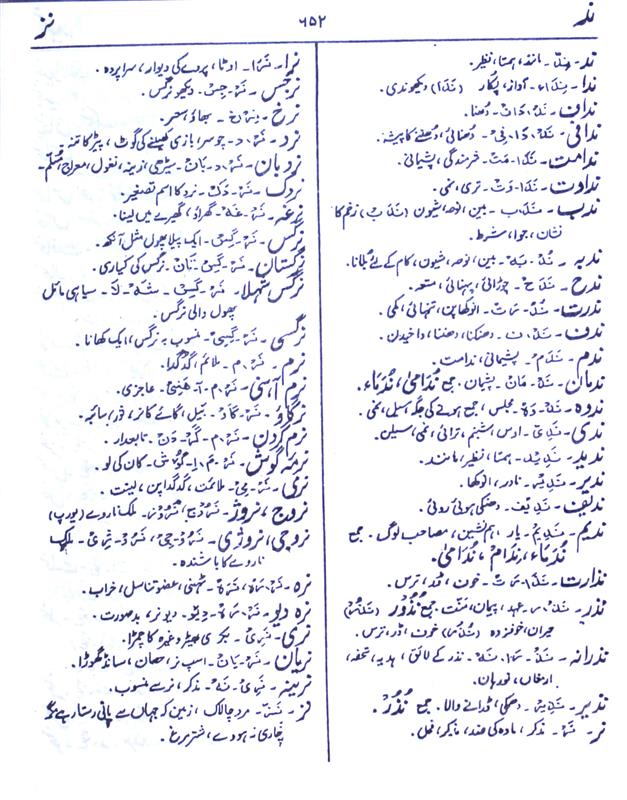 ند
۶۵۲
نز
ند - نِدّ - مانند، ہمتا، نظیر.
ندا - نِدَاء - آواز، پکار (نَدَا) دیکھو ندی.
نداف - نَدْ، دَافْ - دھنا.
ندافی - نَدْ، دَا، فِیْ - دھنائی، دھننے کا پیشہ.
ندامت - نَدَا، مَتْ - شرمندگی، پشیمانی.
نداوت - نَدَا، وَتْ - تری، نمی.
ندب - نَدْب - بین، نوحہ، شیون (نَدَبْ) زخم کا
نشان، جوا، شرط.
ندبہ - نُدْ، بَہْ - بین، نوحہ، شیون، کام کے لئے بلانا.
ندح - نَدْح - چوڑائی، پہنائی،
ندرت - نُدْ، رَتْ - انوکھاپن، تنہائی، کمی.
ندف - نَدْ، ف - دھنکنا، دھننا، واخیدن.
ندم - نَدَم - پشیمانی، ندامت.
ندمان - نَدْ، مَانْ - پشیمان. جمع نَدَامیٰ، نُدَمَاء.
ندوہ - نَدْ، وَہْ - مجلس، جمع ہونے کی جگہ، سیل، نمی.
ندی - نَدیٰ - اوس، شبنم، ترائی، نمی، سیلن.
ندید - نَدِیْد - ہمتا، نظیر، مانند.
ندیر - نَدِیْر - نادر، انوکھا.
ندیف - نَدِیْف - دھنکی ہوئی روئی.
ندیم - نَدِیْم - یار، ہم نشین، مصاحب لوگ. جمع
نُدَمَاء، نِدَام، نَدَامیٰ.
نذارت - نَذَا، رَتْ - خوف، ڈر، ترس.
نذر - نَذْر - عہد، پیمان، منت. جمع نُذُوْر (نَذَرْ)
حیران، خوفزدہ (نُذْر) خوف، ڈر، ترس.
نذرانہ - نَذْ، رَا، نَہْ - نذر کے لائق، ہدیہ، تحفہ،
ارمغان، نورہان.
نذیر - نَذِیْر - دھمکی، ڈرانے والا. جمع نُذُرْ.
نر - نَرْ - مذکر، مادہ کی ضد،
نرا - نَرَا - اوٹا، پردے کی دیوار، سراپردہ.
نرجس - نَرْ، جِسْ - دیکھو نرگس.
نرخ - نِرْخ - بھاؤ، سعر.
نرد - نَرْ، د - چوسر، بازی کھیلنے کی گوٹ، پیڑ کا تنہ
نردبان - نَرْ، دَ، بَانْ - سیڑھی، زینہ، نغول، معراج، سُلّم.
نردک - نَرْ، دَکْ - نرد کا اسم تصغیر.
نرغہ - نَرْ، غَہْ - گھراؤ، گھیرے میں لینا.
نرگس - نَرْ، گِسْ - ایک پیلا پھول مثل آنکھ.
نرگستان - نَرْ، گِسْ، تَانْ - نرگس کی کیاری.
نرگس شہلا - نَرْ، گِسْ - شَہْ، لَا - سیاہی مائل
پھول والی نرگس.
نرگسی - نَرْ، گِسِیْ - منسوب بہ نرگس، ایک کھانا.
نرم - نَرْ، م - ملائم، گدگدا.
نرم آہنی - نَرْ، م - آ، ہَنِیْ - عاجزی.
نرگاؤ - نَرْ، گَاؤْ - بیل، گائے کا نر، ثور، سانجہ.
نرم گردن - نَرْ، م - گَرْ، دَنْ - تابعدار.
نرمہ گوش - نَرْ، مَ، ا، گُوْش - کان کی لو.
نرمی - نَرْ، مِیْ - ملائمت، گدگداپن، لینت.
نروج، نروژ - نَرْوِجْ، نَرْوِژْ - ملک ناروے (یورپ)
نروجی، نروژی - نَرْ، وِ، جِیْ، نَرْ، وِ، ژِیْ - ملک
ناروے کا باشندہ.
نرہ - نَرْ، رَہْ، نَرَہْ - ٹہنی، عضو تناسل، خراب.
نرہ دیو - نَرْ، رَہْ - دِیْو - دیو نر، بدصورت.
نری - نَرِیْ - بکری، بھیڑ وغیرہ کا چمڑا.
نریان - نَرْ، یَانْ - اسپ نر، حصان، سانڈ گھوڑا.
نرینہ - نَرِیْ، نَہْ - مذکر، نر سے منسوب.
نز - نَزّ - مرد چالاک، زمین کہ جہاں سے پانی رستا رہے مگر
جاری نہ ہووے، شترمرغ.